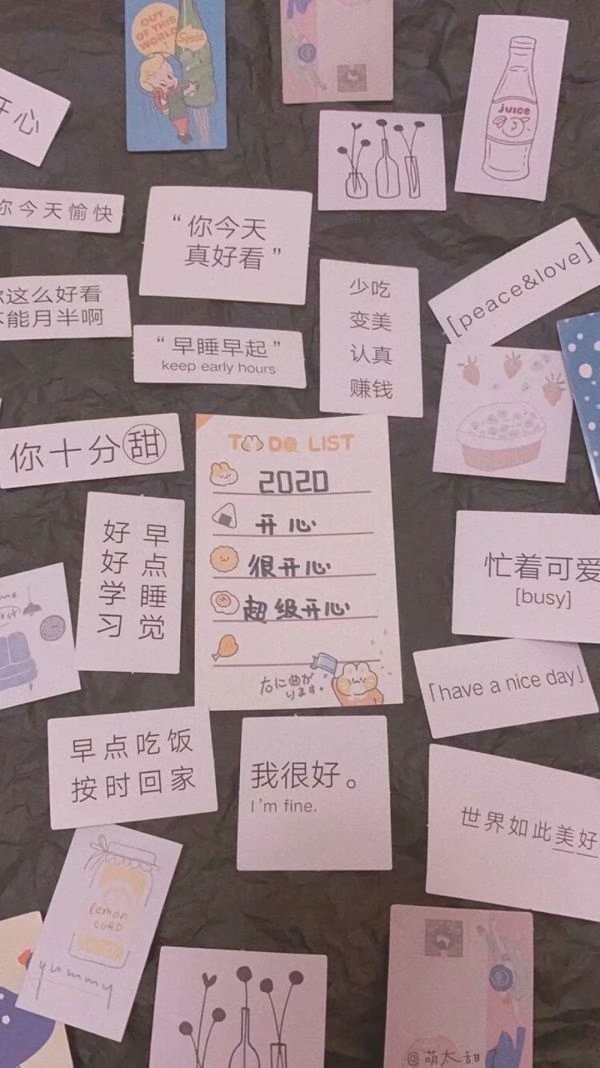 OUT
OF THIS
WORLD
JUICE
开心
你今天愉快
“你今天
真好看”
少吃
变美
认真
赚钱
[peace&love]
这么好看
能月半啊
“早睡早起”
keep early hours
你十分甜
TO DO LIST
2020
开心
很开心
超级开心
右に曲が
ります。
早点睡觉
好好学习
忙着可爱
[busy]
「have a nice day」
早点吃饭
按时回家
我很好。
I'm fine.
世界如此美好
lemon
CURD
yummy
@萌大甜了